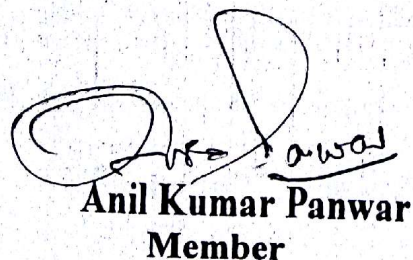 Panwar
Anil Kumar Panwar
Member